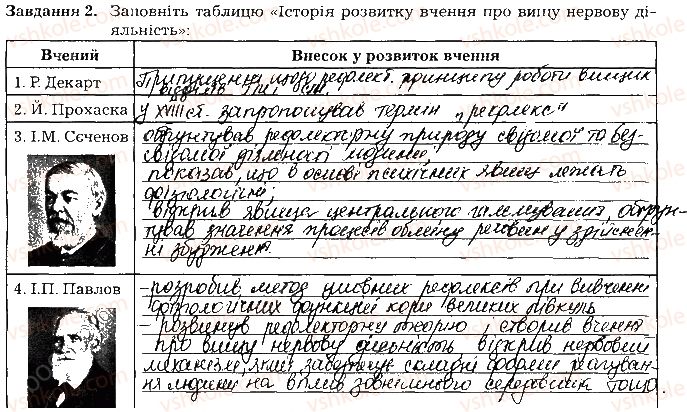 Завдання 2. Заповніть таблицю «Історія розвитку вчення про вищу нервову ді-
яльність»:
Вчений Внесок у розвиток вчення
1. Р. Декарт Припущення щодо рефлект. принципу роботи вищих
відділів
2. Й. Прохаска у XVIII ст. запропонував термін „рефлекс"
3. І.М. Сєченов обґрунтував рефлекторну природу свідомої та без-
свідомої діяльності людини,
показав, що в основі психічних явищ лежать
фізіологічні;
відкрив явища центрального гальмування, обґрун-
тував значення процесів обміну речовин у здійснен-
ні збудження.
4. І.П. Павлов – розробив метод умовних рефлексів при вивченні
фізіологічних функцій кори великих півкуль
– розвинув рефлекторну теорію і створив вчення
про вищу нервову діяльність відкрив нервовий
механізм, який забезпечує складні форми реагуван-
ня людини на вплив зовнішнього середовища тощо.